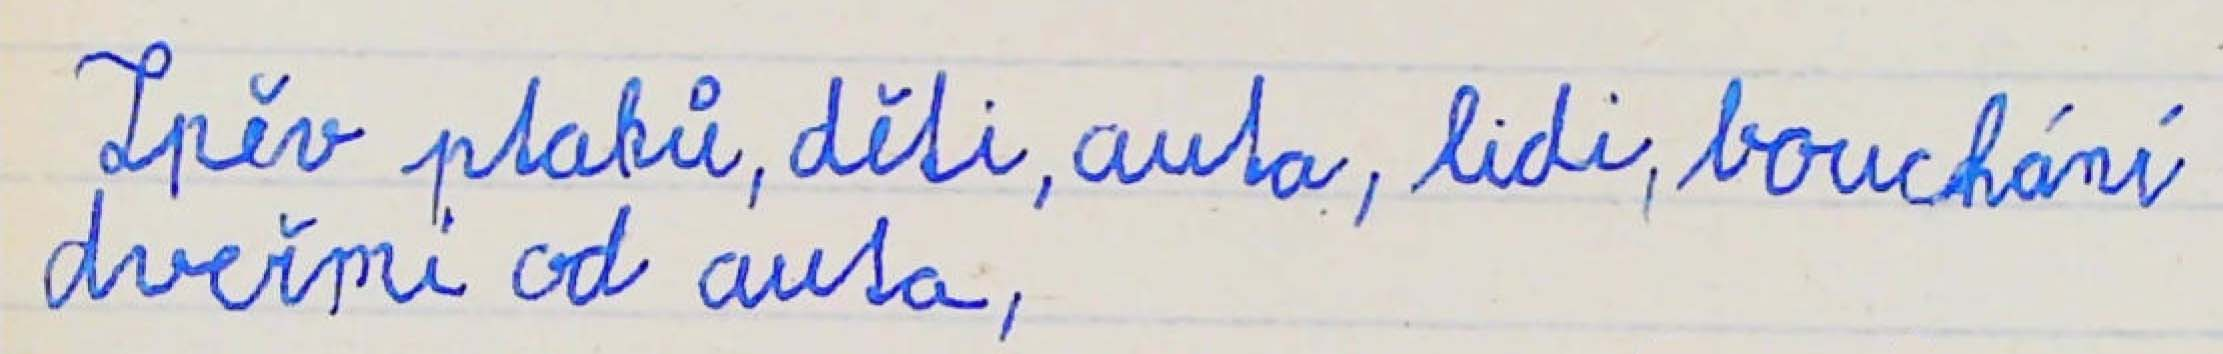 Zpěv ptaků, děti, auta, lidi, bouchání
dveřmi od auta,